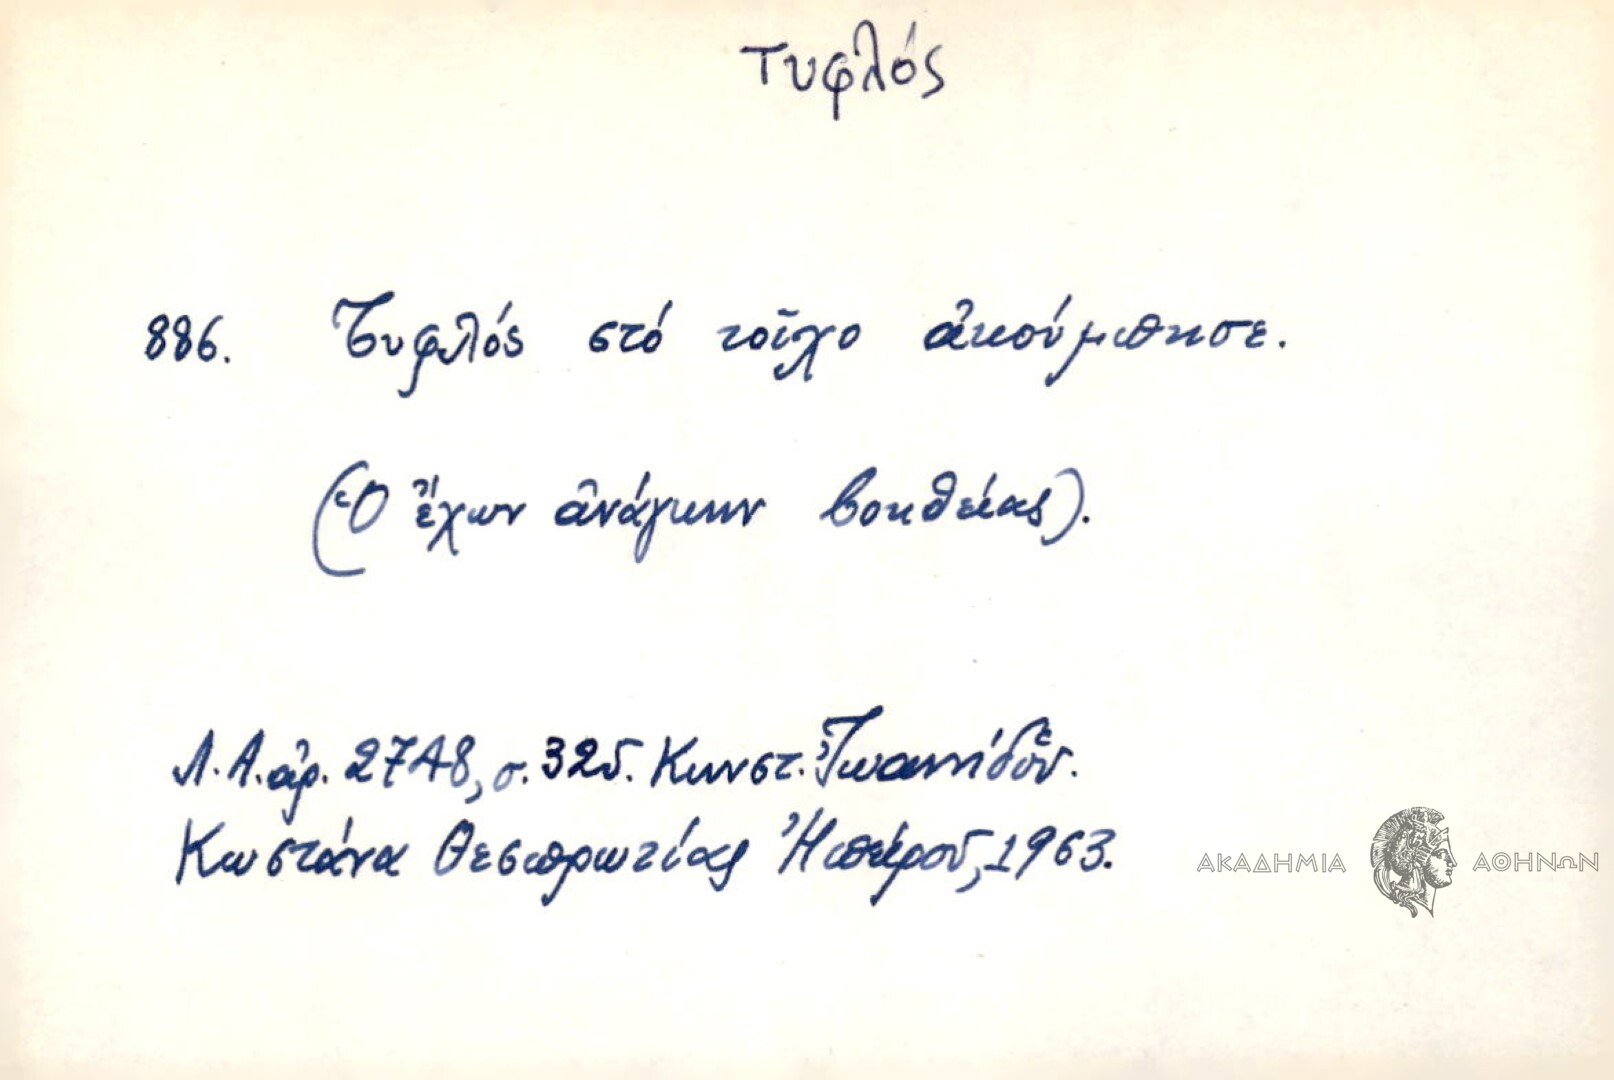 Τυφλός
886. Τυφλός στό τοῖχο ἀκούμπησε.
(Ὁ ἔχων ἀνάγκην βοηθείας).
Λ.Α. ἀρ. 2748, σ. 325. Κωνστ. Ἰωαννίδου.
Κωστάνα Θεσπρωτίας Ἠπείρου, 1963.
ΑΚΑΔΗΜΙΑ ΑΘΗΝΩΝ